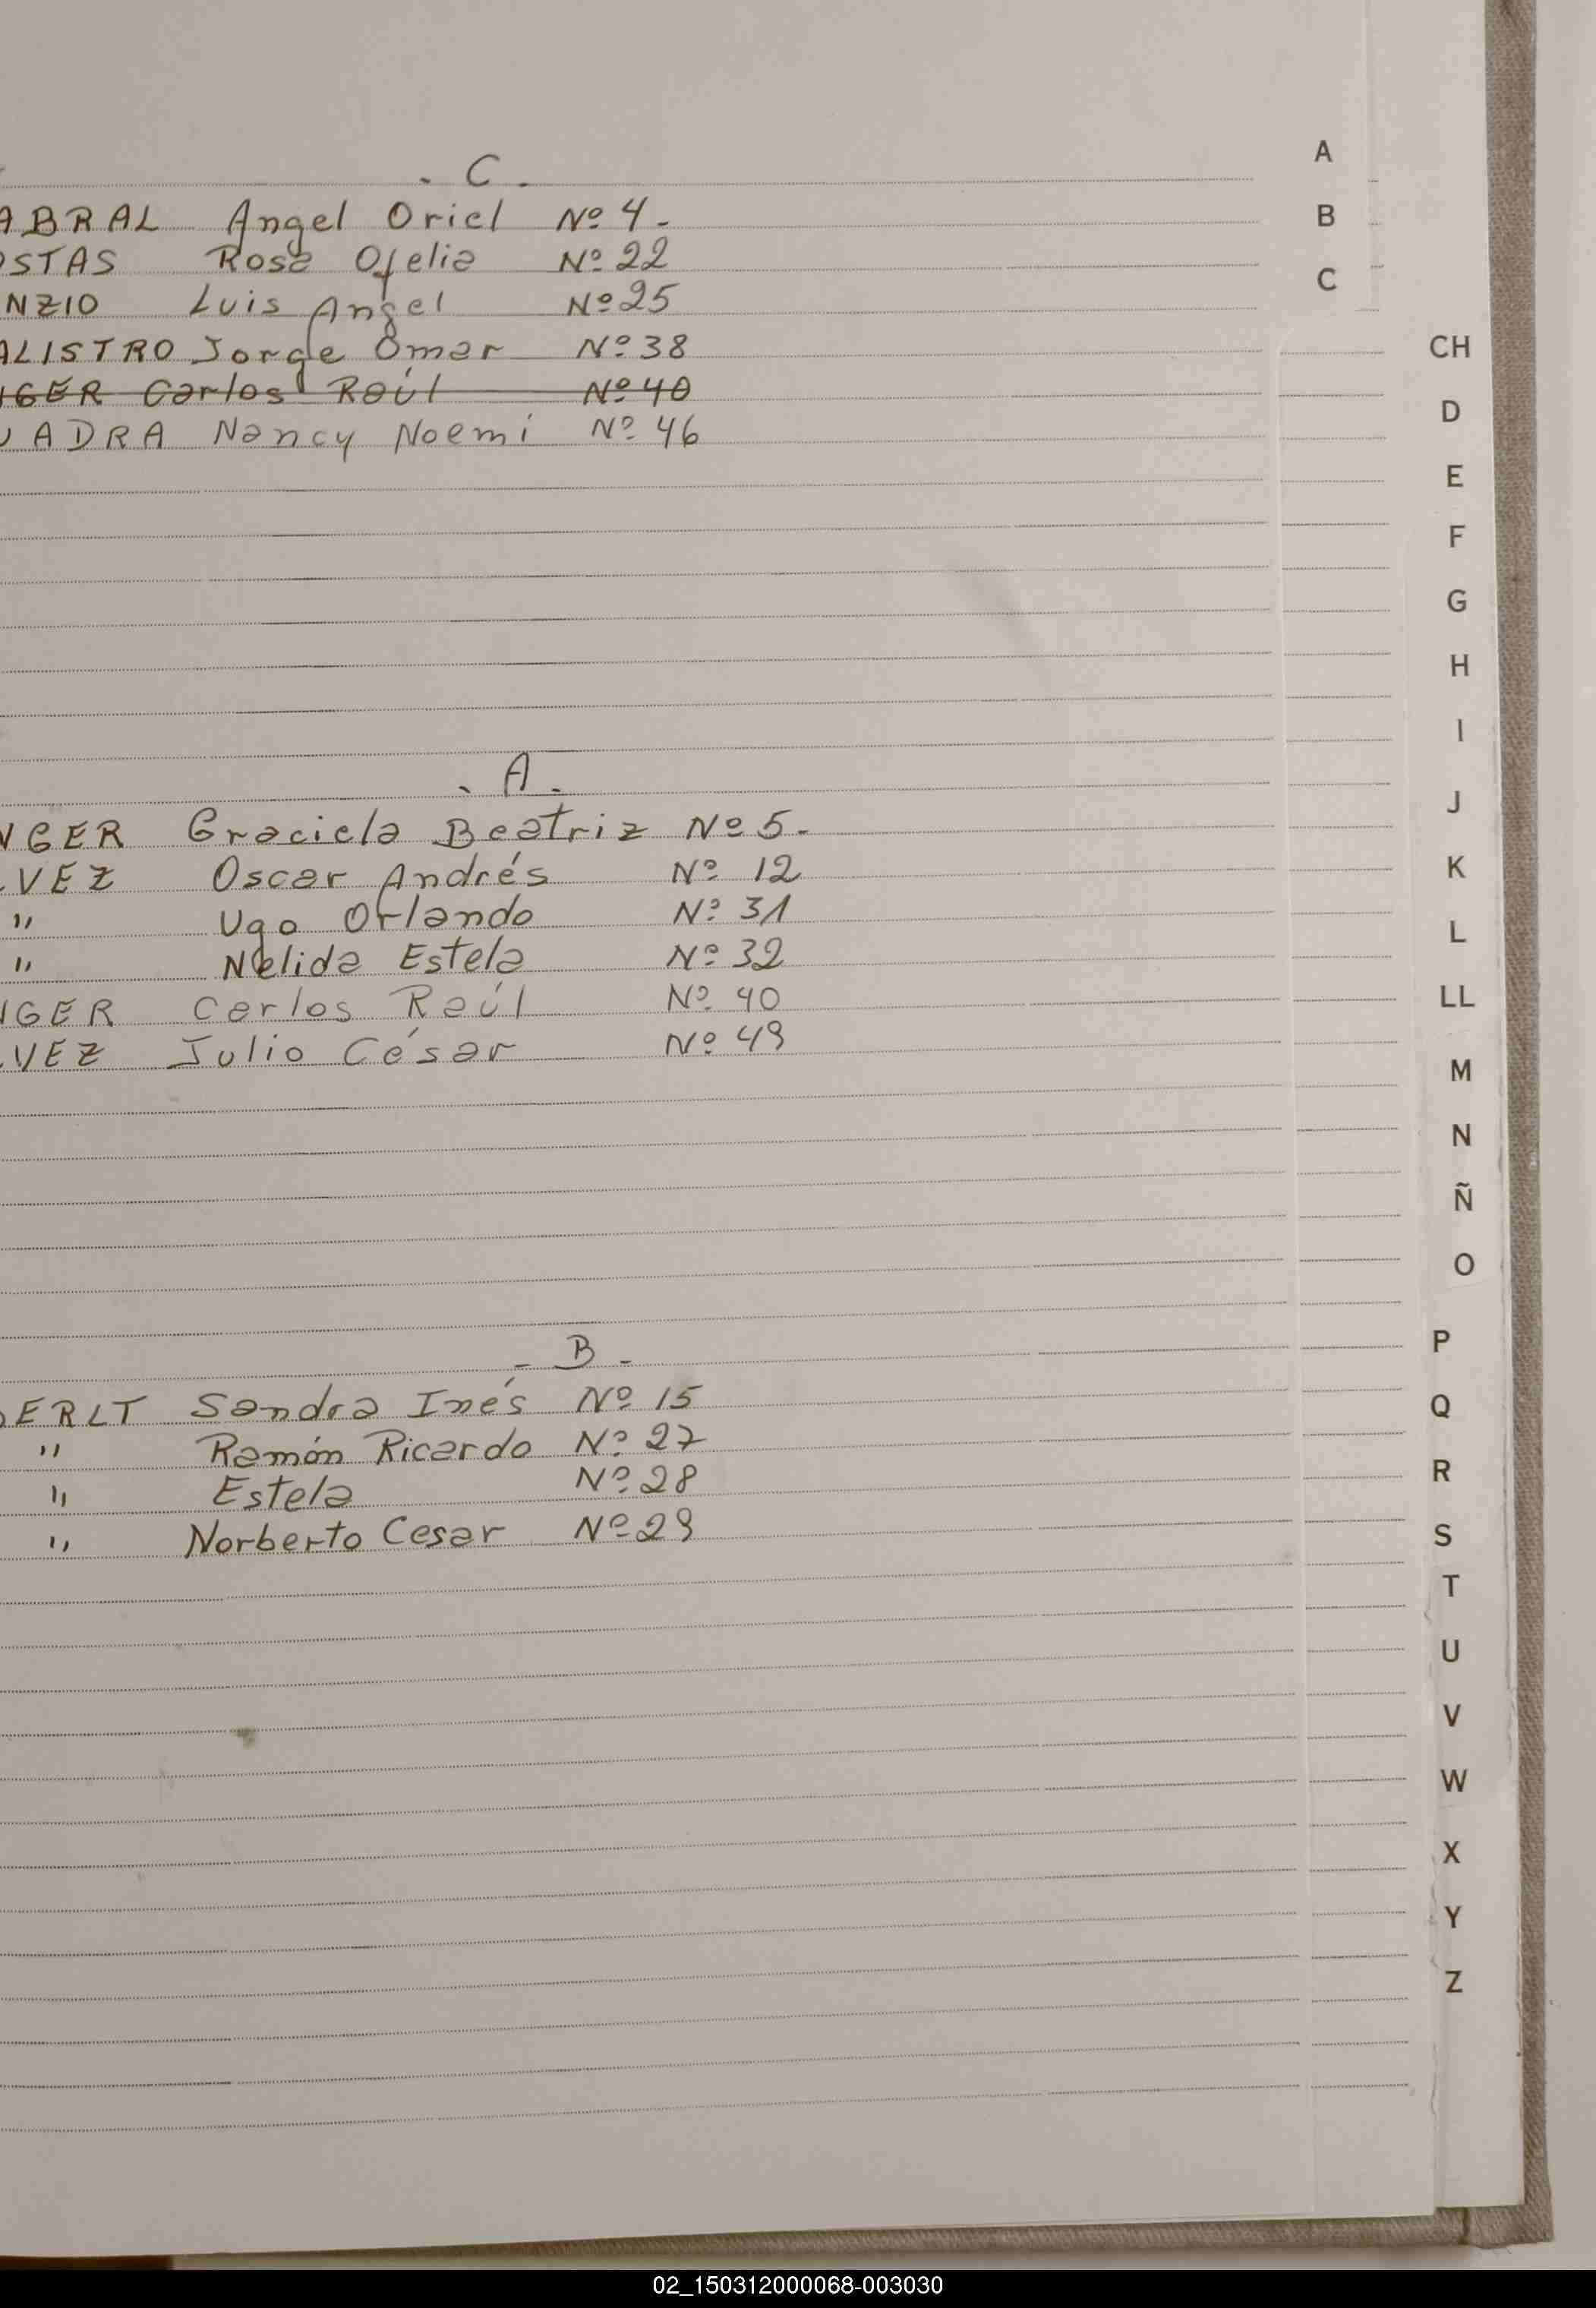 . C .
ABRAL Angel Oriel Nº 4-
OSTAS Rosa Ofelia Nº 22
NZIO Luis Angel Nº 25
ALISTRO Jorge Omar Nº 38
NGER Carlos Raúl Nº 40
UADRA Nancy Noemi Nº 46
. A .
NGER Graciela Beatriz Nº 5-
LVEZ Oscar Andrés Nº 12
" Ugo Orlando Nº 31
" Nelida Estela Nº 32
NGER Carlos Raúl Nº 40
LVEZ Julio César Nº 49
- B -
DERLT Sandra Inés Nº 15
" Ramón Ricardo Nº 27
" Estela Nº 28
" Norberto Cesar Nº 29
A
B
C
CH
D
E
F
G
H
I
J
K
L
LL
M
N
Ñ
O
P
Q
R
S
T
U
V
W
X
Y
Z
02_150312000068-003030